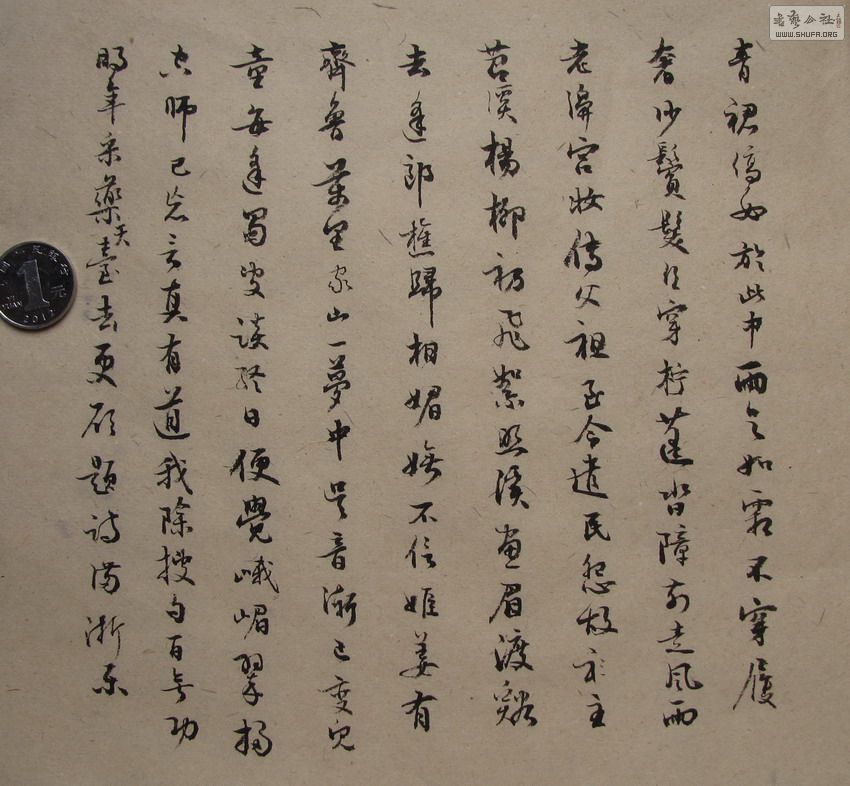 青裙縞於此中兩足如霜不穿屨
奢沙鬢髮絲穿柠蓬沓障前走風雨
老濞宮妝傳父祖至今遺民怨故主
苕溪楊柳初飛絮照溪畫眉渡谿
去逢郎樵歸相媚嫵不信姬姜有
齊魯萬里家山一夢中吳音漸已變兒
童每逢蜀叟談終日便覺峨嵋翠掃
空師已忘言真有道我除搜句百無功
明年采藥天臺去更欲題詩滿浙東
書藝公社
WWW.SHUFA.ORG
1元
YI YUAN
2012